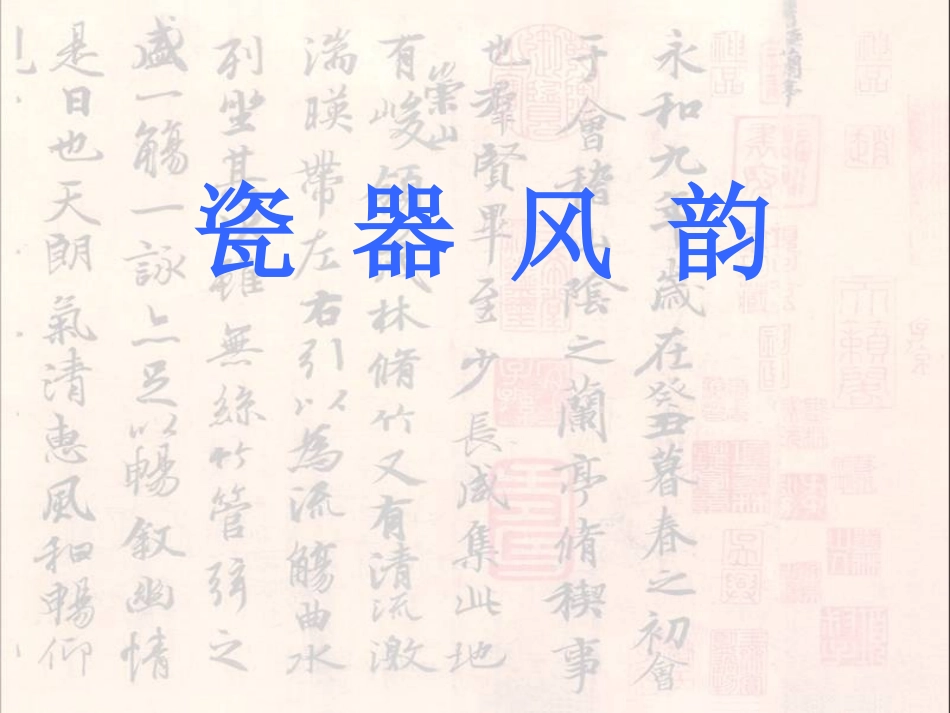 瓷器风韵
永和九年歲在癸丑暮春之初會
于會稽山陰之蘭亭脩稧事
也羣賢畢至少長咸集此地
有崇山峻領茂林脩竹又有清流激
湍暎帶左右引以為流觴曲水
列坐其次雖無絲竹管弦之
盛一觴一詠亦足以暢叙幽情
是日也天朗氣清惠風和暢仰